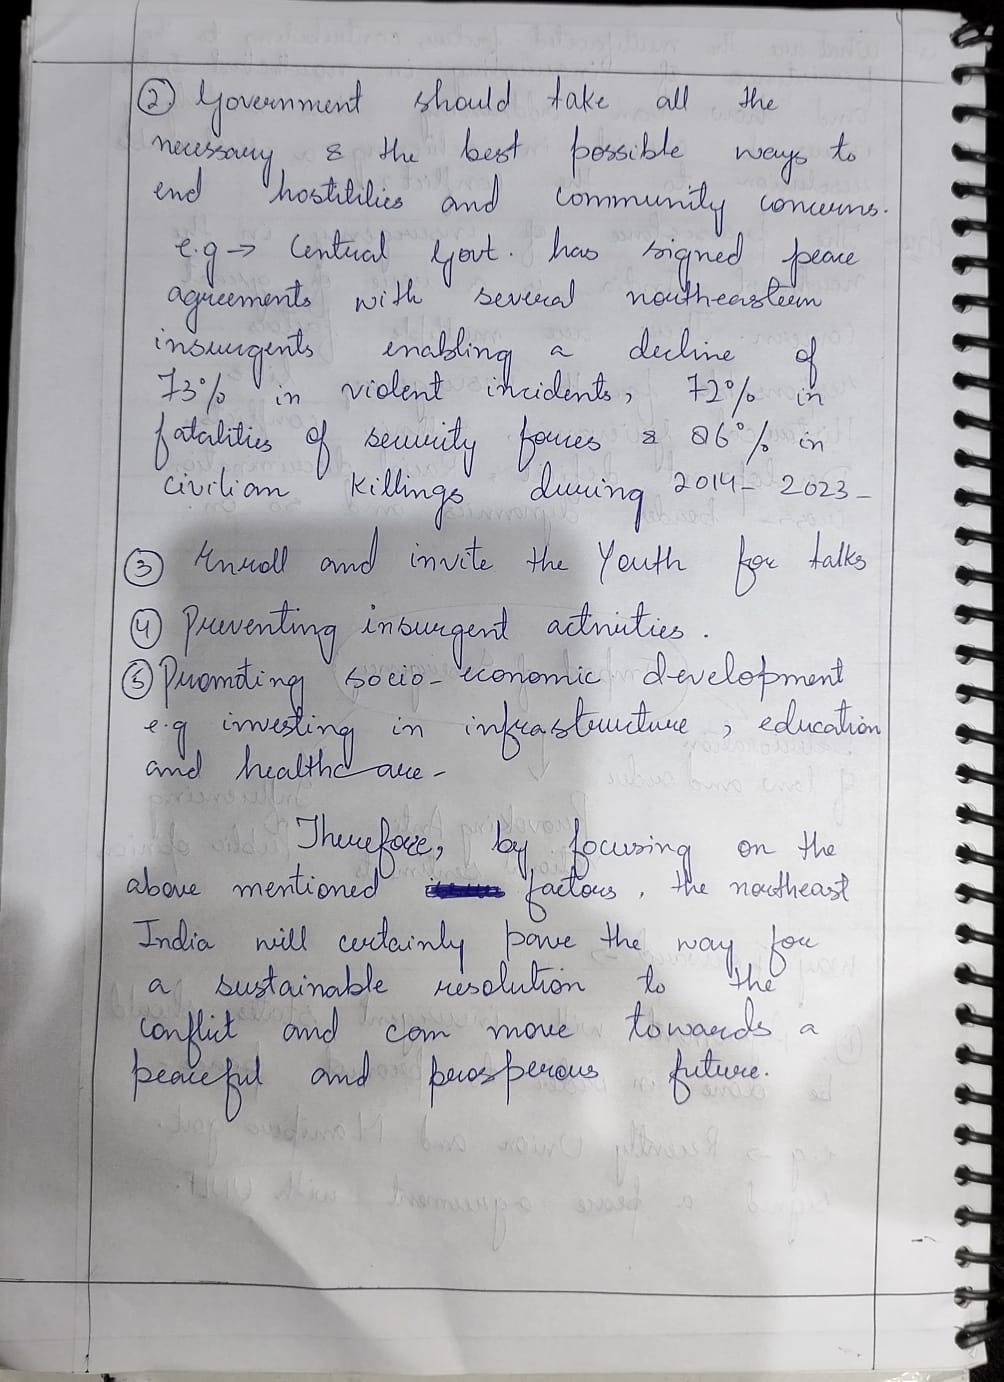 ② Government should take all the
necessary & the best possible ways to
end hostilities and community concerns.
e.g → Central Govt. has signed peace
agreements with several northeastern
insurgents enabling a decline of
73% in violent incidents, 72% in
fatalities of security forces & 86% in
civilian killings during 2014- 2023-
③ Enroll and invite the Youth for talks
④ Preventing insurgent activities.
⑤ Promoting socio-economic development
e.g investing in infrastructure, education
and healthcare-
Therefore, by focusing on the
above mentioned factors, the northeast
India will certainly pave the way for
a sustainable resolution to the
conflict and can move towards a
peaceful and prosperous future.